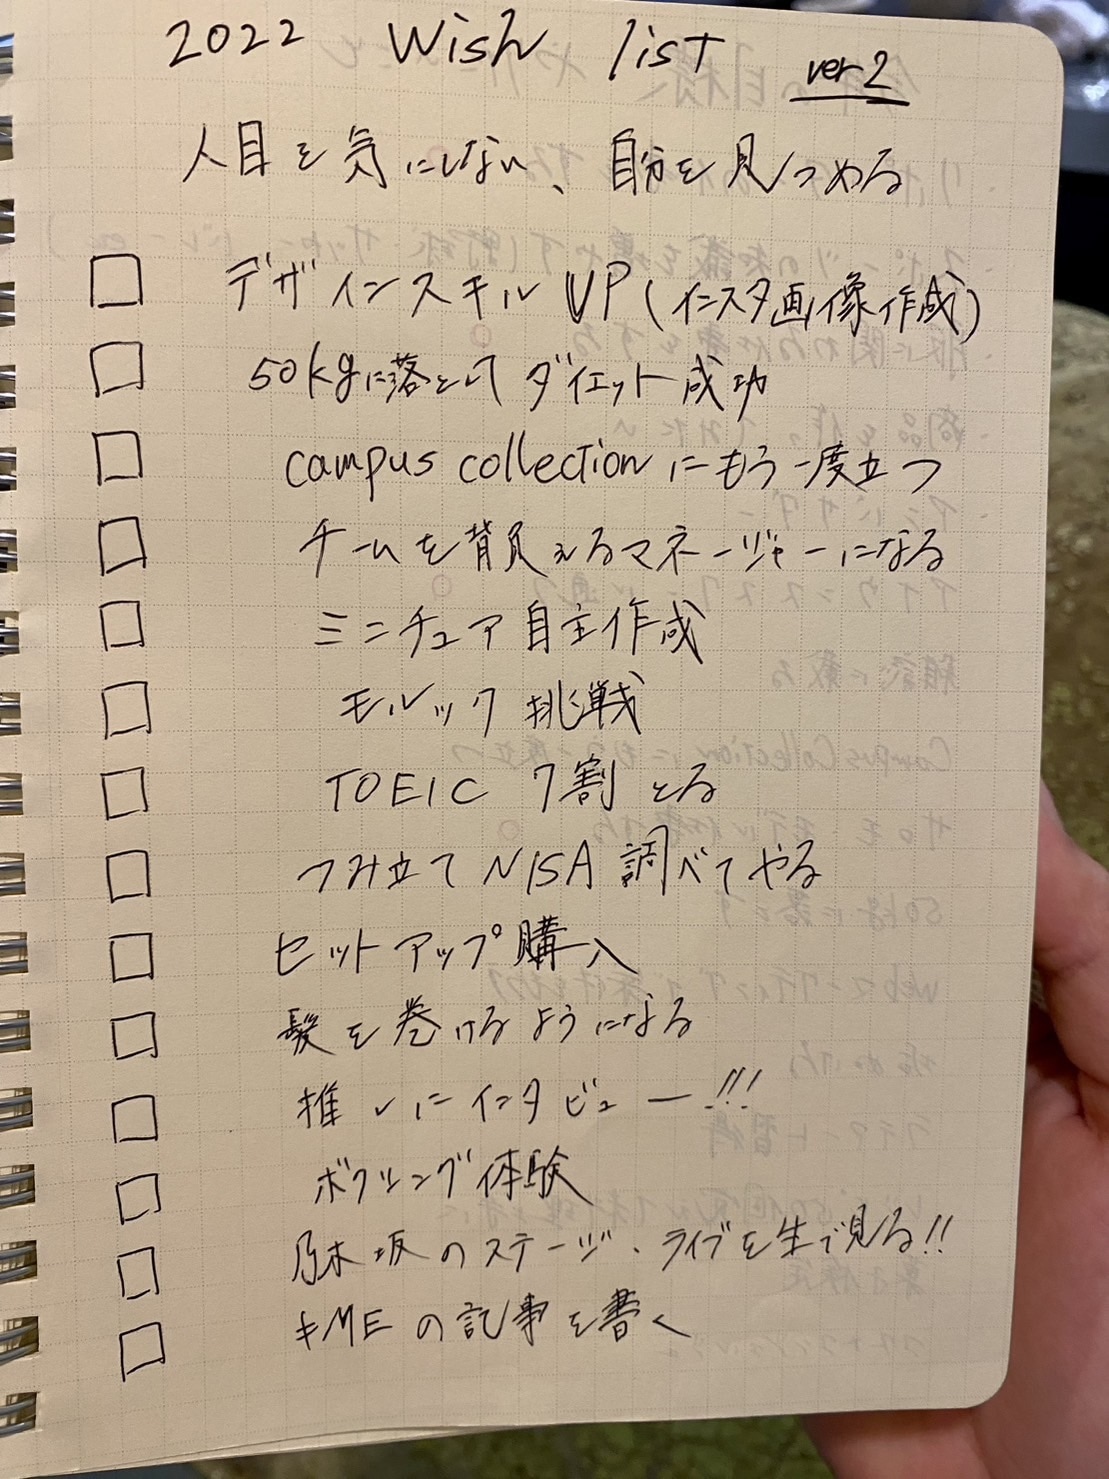 2022 Wish list ver 2
人目を気にしない、自分を見つめる
デザインスキルUP(インスタ画像作成)
50kgに落としてダイエット成功
campus collectionにもう一度立つ
チームを背負えるマネージャーになる
ミニチュア自主作成
モルック挑戦
TOEIC 7割とる
つみ立てNISA調べてやる
セットアップ購入
髪を巻けるようになる
推しにインタビュー!!!
ボクシング体験
乃木坂のステージ、ライブを生で見る!!
#MEの記事を書く